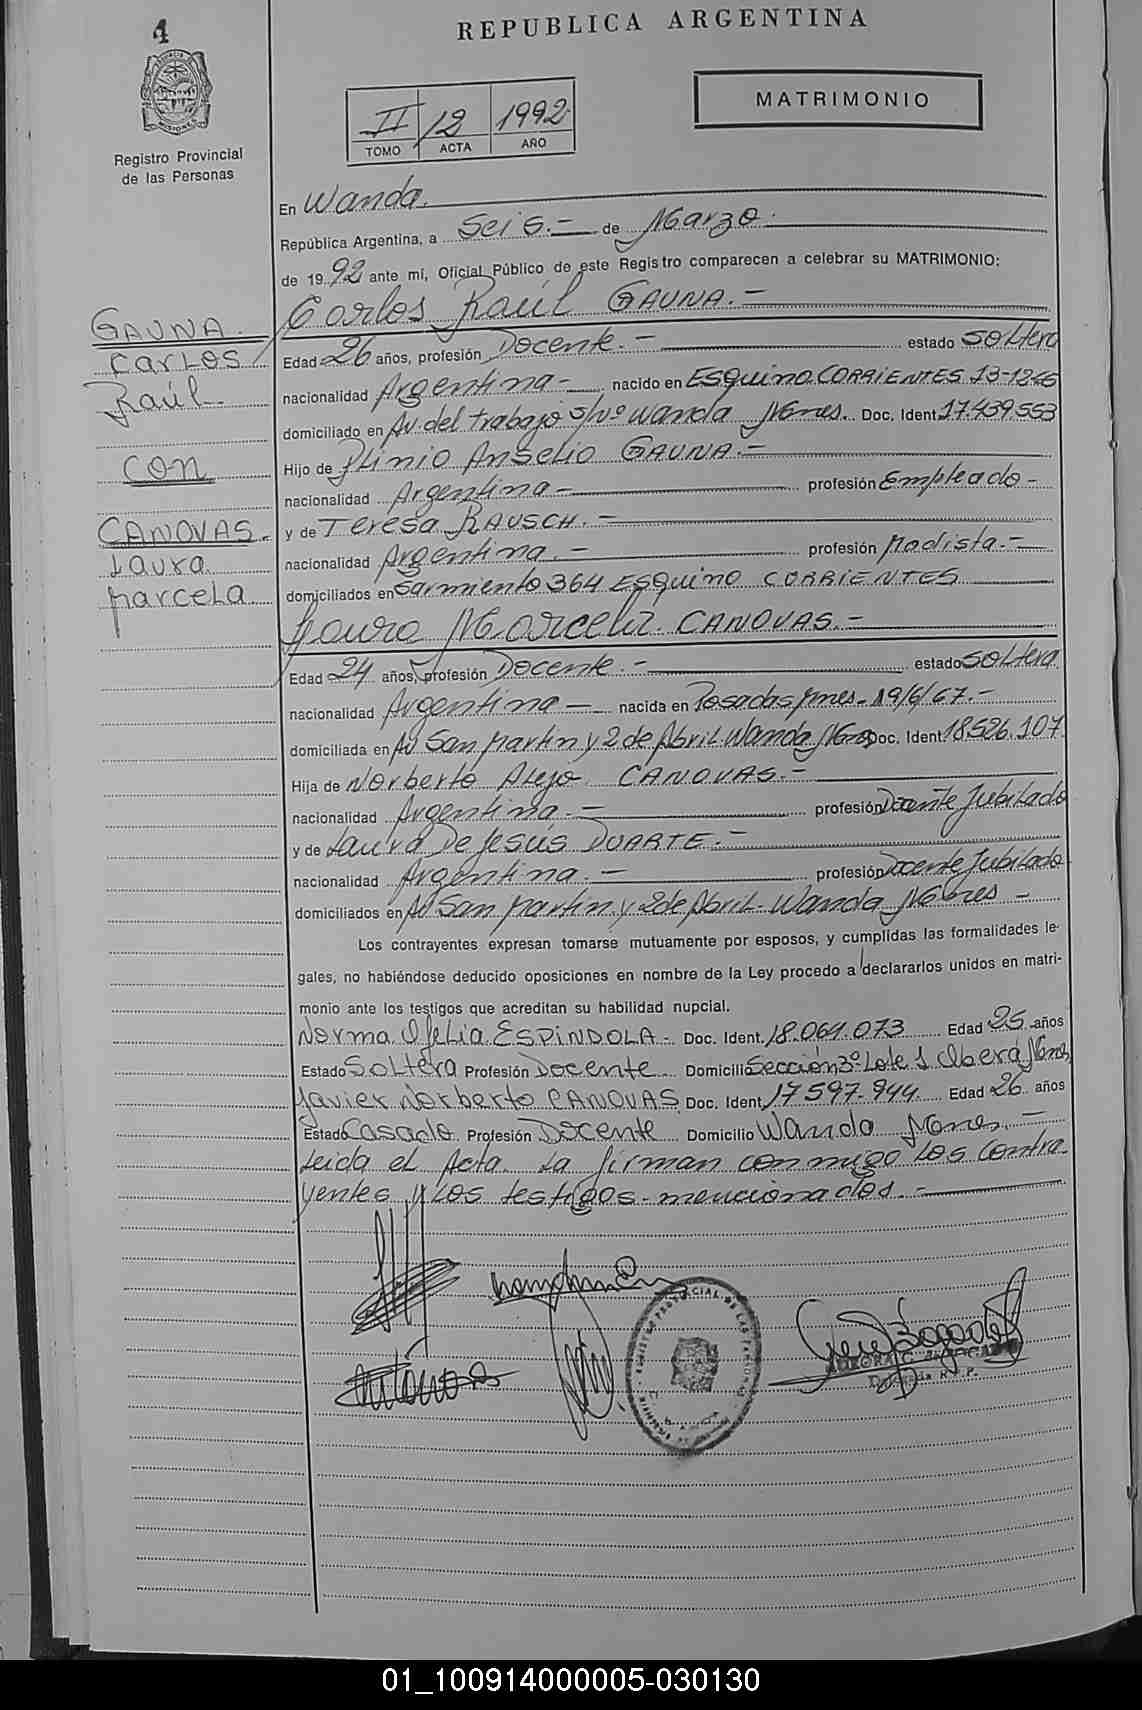 1
REPUBLICA ARGENTINA
MATRIMONIO
II 12 1992
TOMO ACTA AÑO
Registro Provincial
de las Personas
En Wanda.
República Argentina, a Seis.- de Marzo.
de 1992 ante mí, Oficial Público de este Registro comparecen a celebrar su MATRIMONIO:
Carlos Raúl GAUNA.-
GAUNA.
CARLOS
Raúl.
CON
CANOVAS.
Laura
Marcela
Edad 26 años, profesión Docente.- estado SOLtero
nacionalidad Argentina- nacido en ESQUINA CORRIENTES 13-12-65
domiciliado en Av. del trabajo s/nº Wanda Mnes. Doc. Ident 17.439.553
Hijo de Plinio Anselio GAUNA.-
nacionalidad Argentina- profesión Empleado-
y de Teresa RAUSCH.-
nacionalidad Argentina.- profesión Modista.-
domiciliados en Sarmiento 364 ESQUINA CORRIENTES
Laura Marcela CANOVAS.-
Edad 24 años, profesión Docente.- estado SOLtera
nacionalidad Argentina- nacida en Posadas Mnes- 19/6/67.-
domiciliada en Av San Martin y 2 de Abril Wanda Mnes Doc. Ident 18.526.107
Hija de Norberto Alejo CANOVAS.-
nacionalidad Argentina.- profesión Docente Jubilado
y de Laura De Jesús DUARTE.-
nacionalidad Argentina.- profesión Docente Jubilada
domiciliados en Av San Martin y 2 de Abril- Wanda Mnes-
Los contrayentes expresan tomarse mutuamente por esposos, y cumplidas las formalidades le-
gales, no habiéndose deducido oposiciones en nombre de la Ley procedo a declararlos unidos en matri-
monio ante los testigos que acreditan su habilidad nupcial.
Norma Ofelia ESPINDOLA- Doc. Ident. 18.064.073 Edad 25 años
Estado SOLtera Profesión Docente Domicilio Sección 3º Lote 1 Oberá Mnes
Javier Norberto CANOVAS Doc. Ident 17.597.944 Edad 26 años
Estado Casado Profesión Docente Domicilio Wanda Mnes.-
Leida el Acta. La firman conmigo los contra-
yentes y los testigos mencionados.-
01_100914000005-030130